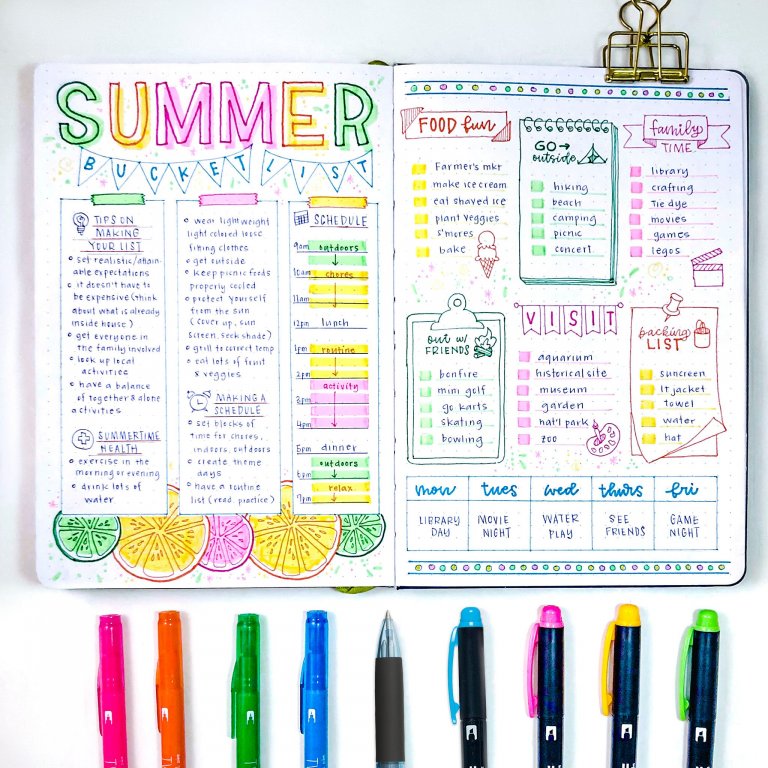 SUMMER
BUCKET LIST
TIPS ON
MAKING
YOUR LIST
set realistic/attain-
able expectations
it doesn't have to
be expensive (think
about what is already
inside house)
get everyone in
the family involved
look up local
activities
have a balance
of together & alone
activities
SUMMERTIME
HEALTH
exercise in the
morning or evening
drink lots of
water
wear lightweight
light colored loose
fitting clothes
get outside
keep picnic foods
properly cooled
protect yourself
from the sun
(cover up, sun
screen, seek shade)
grill to correct temp
eat lots of fruit
& veggies
MAKING A
SCHEDULE
set blocks of
time for chores,
indoors, outdoors
create theme
days
have a routine
list (read, practice)
SCHEDULE
9am outdoors
10am chores
11am
12pm lunch
1pm routine
2pm activity
3pm
4pm
5pm dinner
outdoors
relax
7pm
FOOD fun
Farmer's mkr
make ice cream
eat shaved ice
plant veggies
s'mores
bake
GO →
outside
hiking
beach
camping
picnic
concert
family
TIME
library
crafting
Tie dye
movies
games
legos
out w/
FRIENDS
bonfire
mini golf
go karts
skating
bowling
VISIT
aquarium
historical site
museum
garden
nat'l park
zoo
packing
LIST
suncreen
lt jacket
towel
water
hat
mon tues wed thurs fri
LIBRARY MOVIE WATER SEE GAME
DAY NIGHT PLAY FRIENDS NIGHT